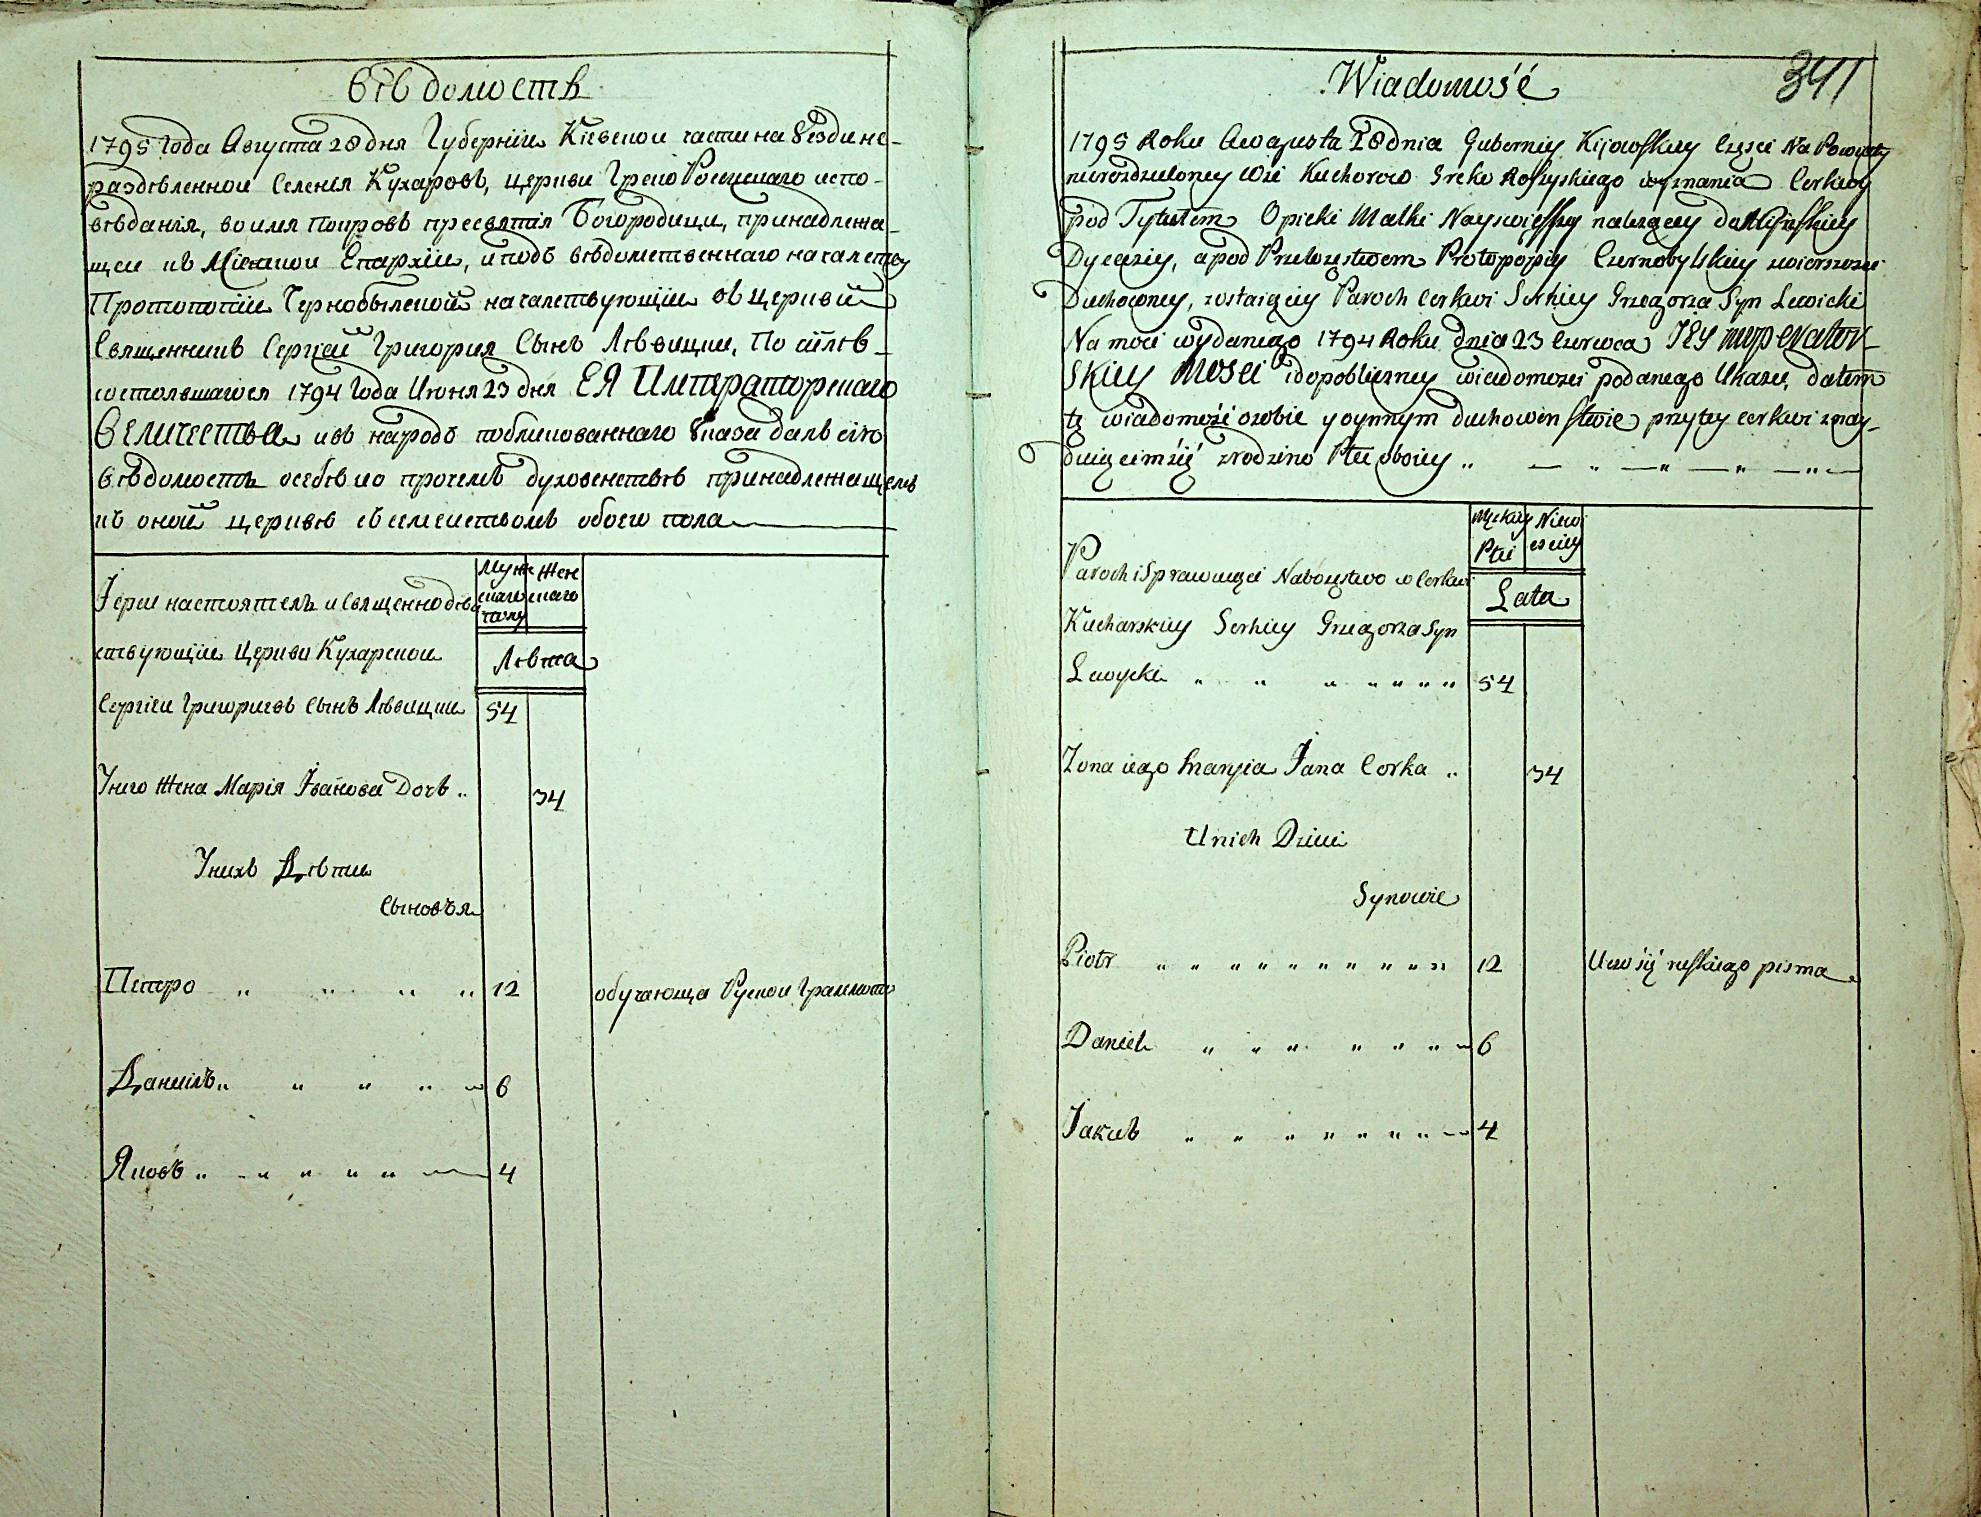 Вѣдомость
1795 года Августа 28 дня Губернїи Кіевской части на Уезди не-
раздѣленной Селенїя Кухаровъ, церкви Греко Россискаго испо-
вѣданїя, во имя Покровъ пресвятїя Богородици, принадлежа-
щеи къ Мінской Епархїи, и подъ вѣдомственнаго началству
Протопопїи Чернобылской началствующїи въ церкви
Священникъ Сергїй Григория Сынъ Лѣвицкии, По силѣ
состоявшагося 1794 года Июня 23 дня ЕЯ Императорскаго
Величества и въ народъ публикованнаго Указа далъ сїю
вѣдомость о себѣ и о протчемъ духовенствѣ принадлежащемъ
къ оной церквѣ съ семействомъ обоего пола
Муж Жен
скаго скаго
полу
Іереи настоятель и священнодѣй
ствующїи Церкви Кухарской
Лѣта
Сергїи Григориевъ Сынъ Лѣвицкии 54
У него Жена Марїя Іванова Дочъ „ 34
У нихъ Дѣти
Сыновъя
Петро „ „ „ „ 12 обучающа Руской Грамматы
Данїилъ „ „ „ „ 6
Яковъ „ „ „ „ „ 4
Wiadomość
341
1795 Roku Awgusta 28 dnia Gubernij Kijowskiey Części Na Powiaty
nierozdzieloney Wsi Kucharow Greko Rossyiskiego wyznania Cerkwi
pod Tytułem Opieki Matki Nayświętszey należącey do Mińskiey
Dyecezij, a pod Przełożęstwem Protopopij Czernobylskiey zwierzchności
Duchowney, zostaięcy Paroch Cerkwi Serhiey Grzegorza Syn Lewicki
Na mocy wydanego 1794 Roku dnia 23 Czerwca JEY imperator-
Skiey Mosci i do publiczney wiadomości podanego Ukazu, dałem
tę wiadomość o sobie y o ynnym duchowenstwie przy tey cerkwi znay-
duięcimsię z rodzino Płci oboiey „ — „ — „ — „ — „ —
Męskiey Niewi
Płci esciey
Paroch i Sprawuięci Nabożęstwo w Cerkwi
Lata
Kucharskiey Serhiey Grzegorza Syn
Lewycki „ „ „ „ „ „ „ 54
Żona iego Maryia Jana Corka „ 34
U nich Dzieci
Synowie
Piotr „ „ „ „ „ „ „ „ „ „ 12 Uczy się ruskiego pisma
Daniel „ „ „ „ „ „ „ 6
Jakub „ „ „ „ „ „ „ „ 4